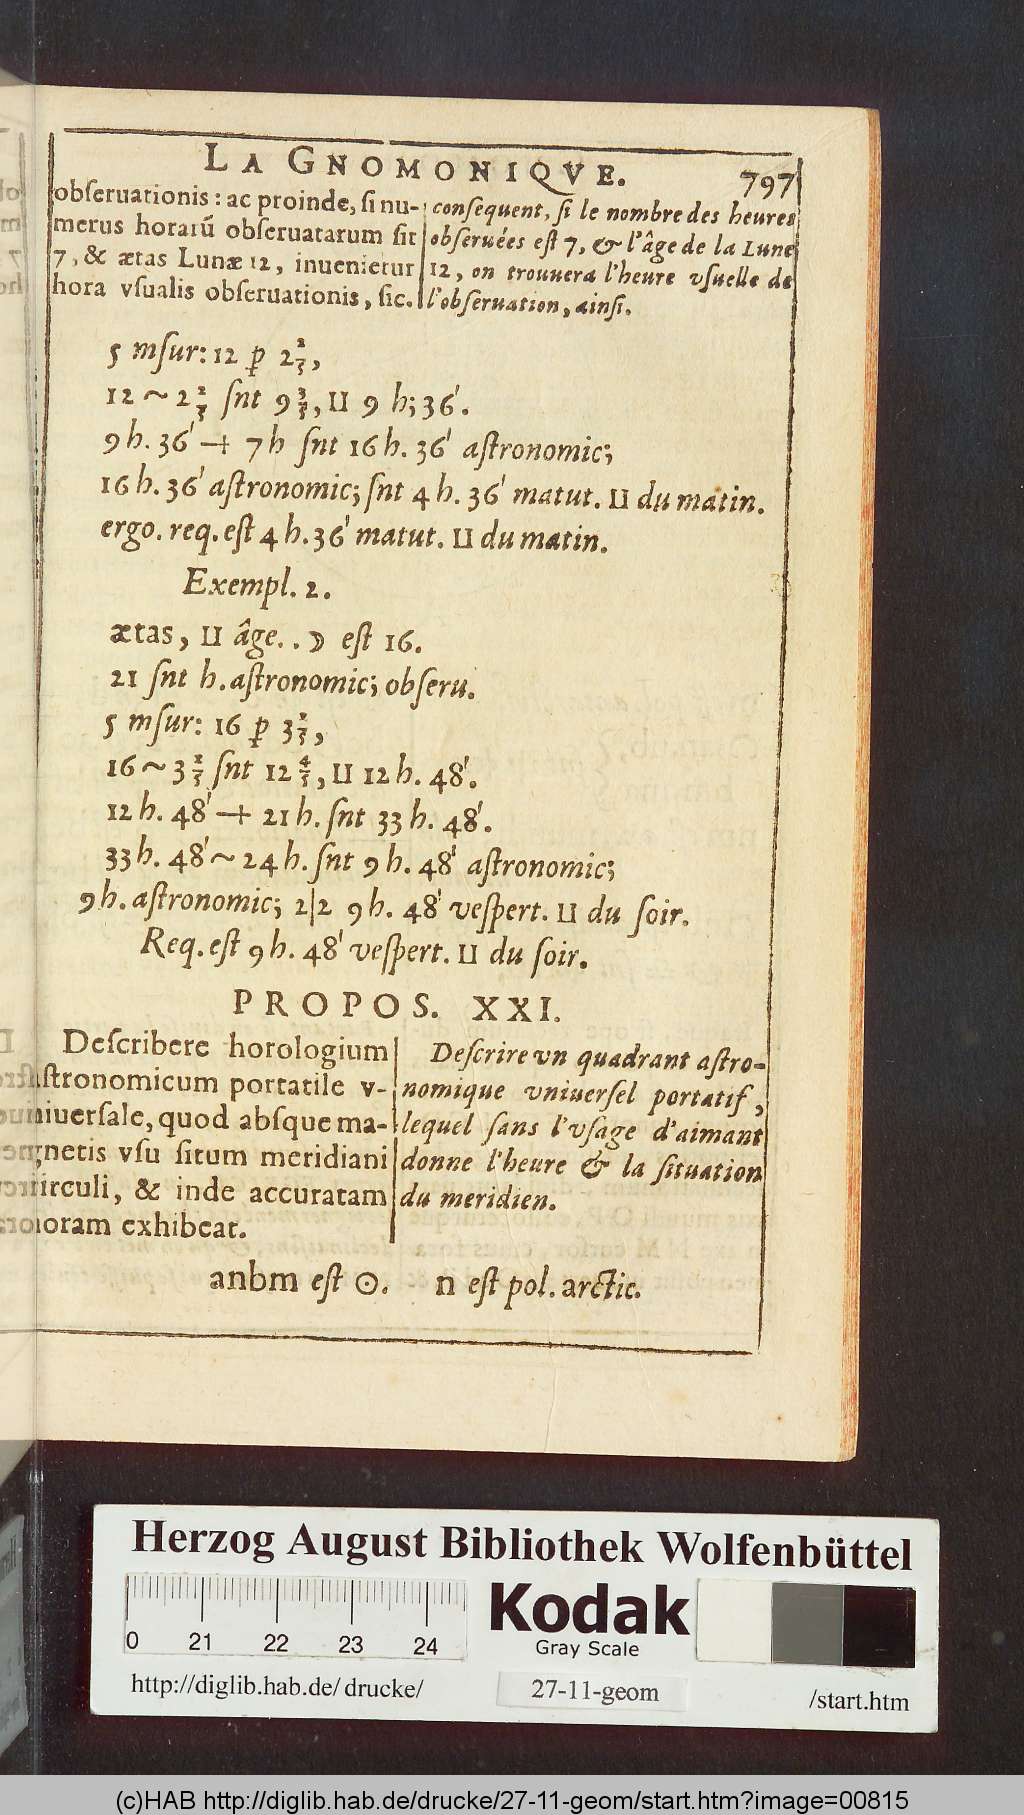 LA GNOMONIQVE. 797
obſeruationis: ac proinde, ſi nu-
merus horarū obſeruatarum ſit
7, & ætas Lunæ 12, inuenietur
hora vſualis obſeruationis, ſic.
conſequent, ſi le nombre des heures
obſeruées eſt 7, & l'âge de la Lune
12, on trouuera l'heure vſuelle de
l'obſeruation, ainſi.
5 mſur: 12 p 2 2/5,
12 ~ 2 2/5 ſnt 9 3/5, II 9 h; 36'.
9 h. 36' + 7 h ſnt 16 h. 36' aſtronomic;
16 h. 36' aſtronomic; ſnt 4 h. 36' matut. II du matin.
ergo. req. eſt 4 h. 36' matut. II du matin.
Exempl. 2.
ætas, II âge. . ☽ eſt 16.
21 ſnt h. aſtronomic; obſeru.
5 mſur: 16 p 3 1/5,
16 ~ 3 1/5 ſnt 12 4/5, II 12 h. 48'.
12 h. 48' + 21 h. ſnt 33 h. 48'.
33 h. 48' ~ 24 h. ſnt 9 h. 48' aſtronomic;
9 h. aſtronomic; 2|2 9 h. 48' veſpert. II du ſoir.
Req. eſt 9 h. 48' veſpert. II du ſoir.
PROPOS. XXI.
Deſcribere horologium
aſtronomicum portatile v-
niuerſale, quod abſque ma-
gnetis vſu ſitum meridiani
circuli, & inde accuratam
horam exhibeat.
Deſcrire vn quadrant aſtro-
nomique vniuerſel portatif,
lequel ſans l'vſage d'aimant
donne l'heure & la ſituation
du meridien.
anbm eſt ⊙. n eſt pol. arctic.
Herzog August Bibliothek Wolfenbüttel
0 21 22 23 24
Kodak
Gray Scale
http://diglib.hab.de/drucke/ 27-11-geom /start.htm
(c)HAB http://diglib.hab.de/drucke/27-11-geom/start.htm?image=00815